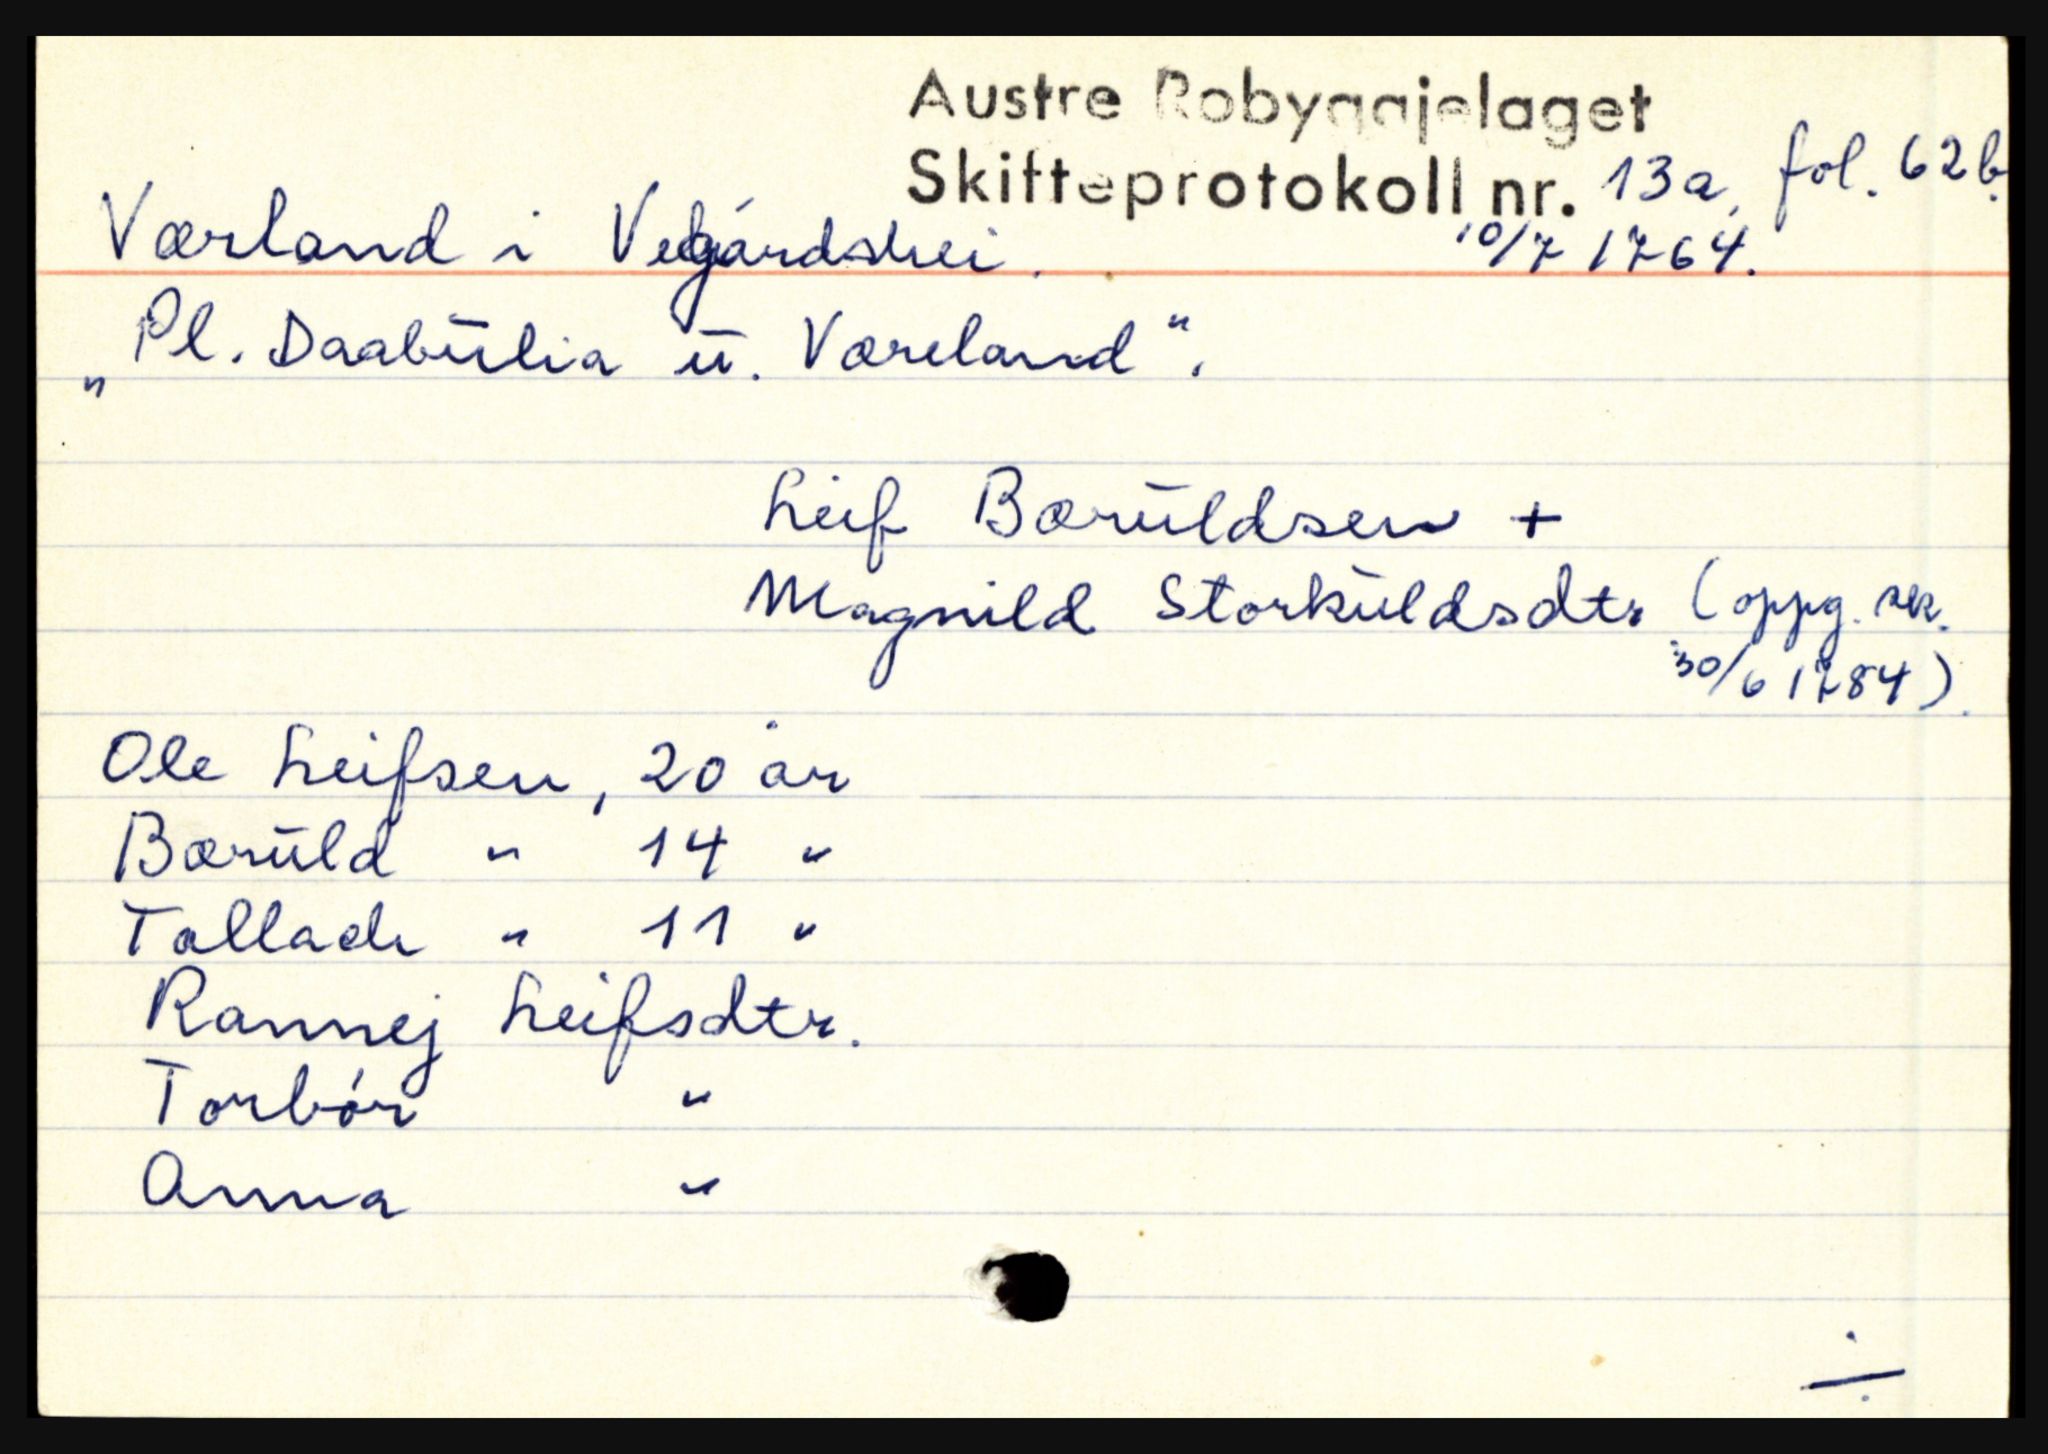 Austre Robyggjelaget
Skifteprotokoll nr. 13a, fol. 62b.
Værland i Vegårdshei. 10/7 1764.
„Pl. Daabŭlia ŭ. Væreland".
Leif Bærŭldsen +
Magnild Storkŭldsdtr (oppg. sk.
30/6 1784).
Ole Leifsen, 20 år
Bærŭld " 14 "
Tallach " 11 "
Rannej Leifsdtr.
Torbór "
Anna "
÷